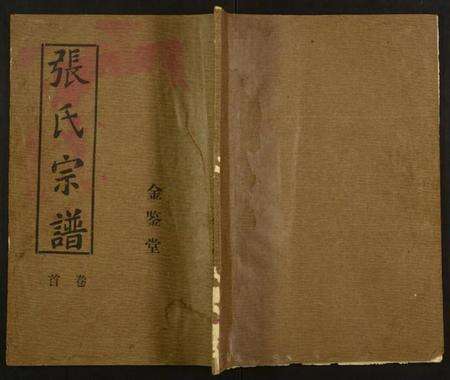 張氏宗譜
卷首
金鉴堂